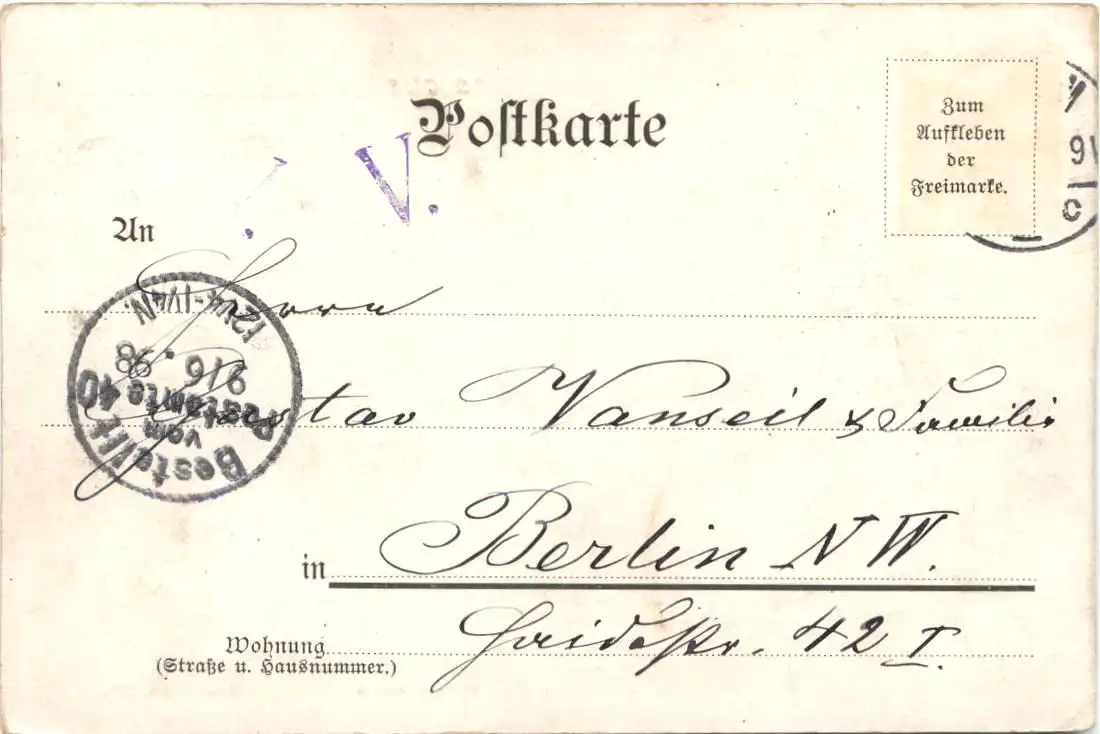 Postkarte
Zum
Aufkleben
der
Freimarke.
V.
An
Herrn
Gustav Vanseil & Familie
in Berlin N W.
Wohnung
(Straße u. Hausnummer.)
Haidestr. 42 I.
Bestellt
vom
Postamte 40
9/6 98
9
C